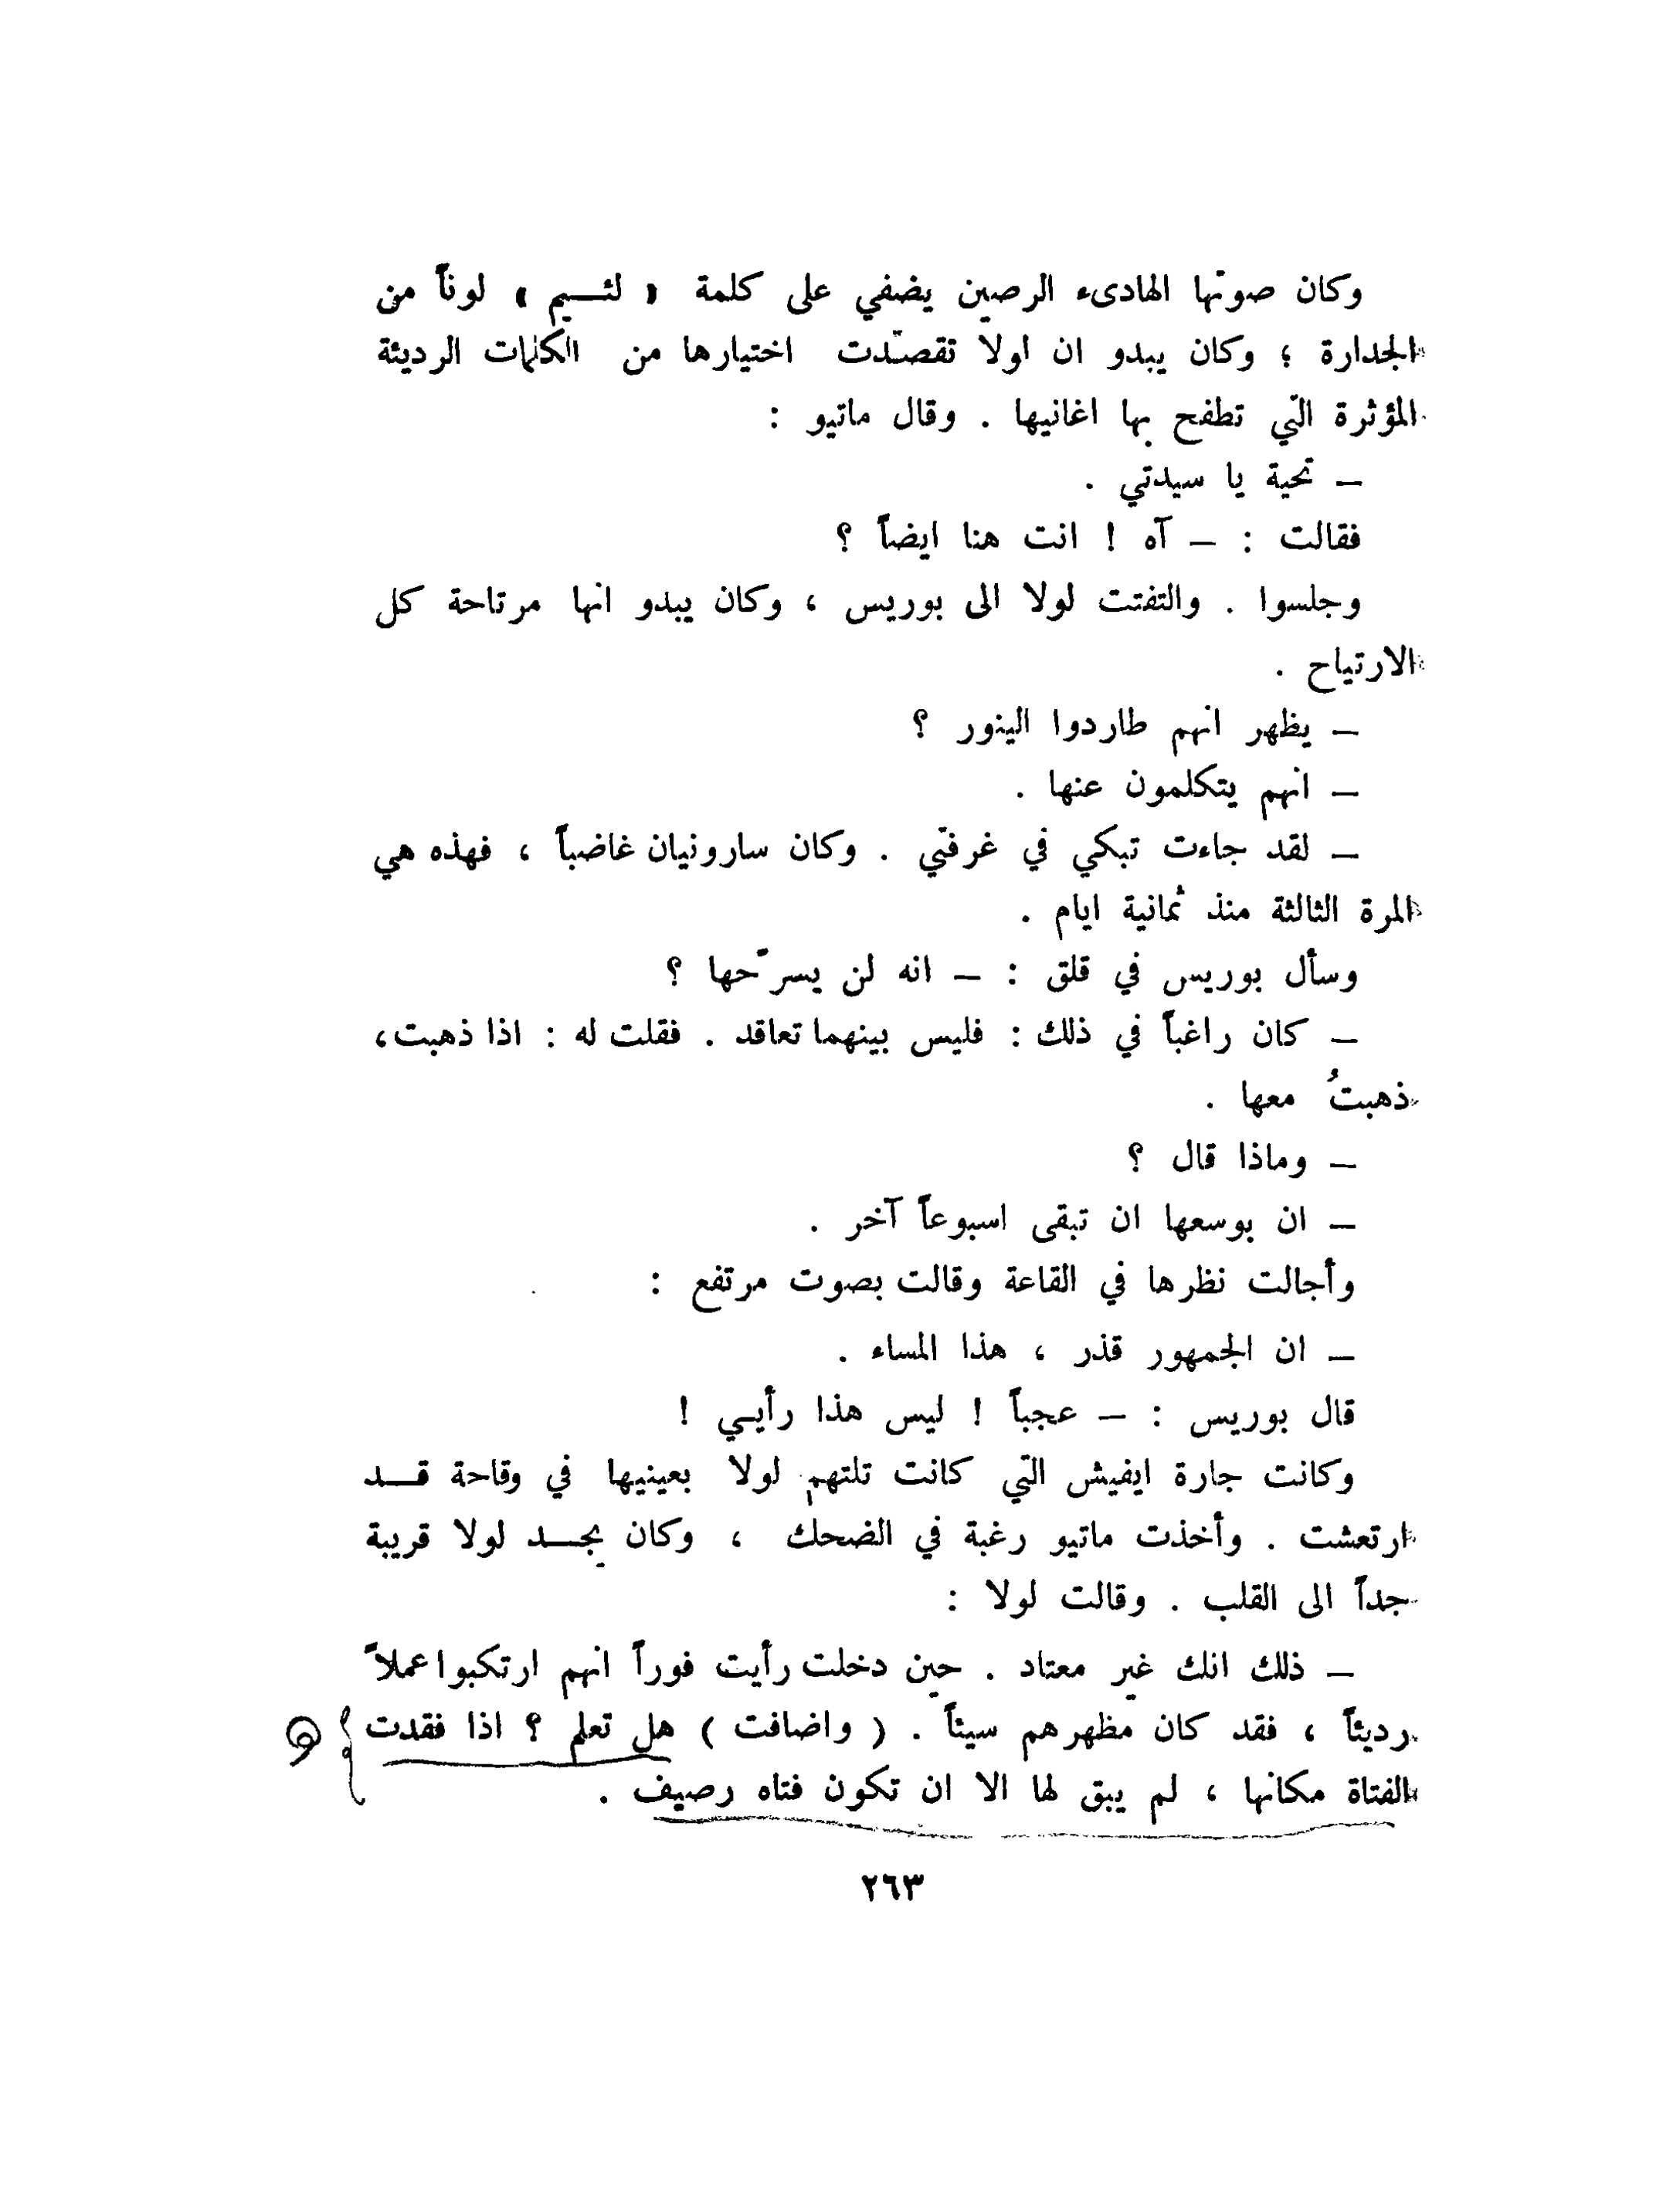 وكان صوتها الهادىء الرصين يضفي على كلمة « لئــيم » لوناً من
الجدارة ؛ وكان يبدو ان لولا تقصّدت اختيارها من الكلمات الرديئة
المؤثرة التي تطفح بها اغانيها . وقال ماتيو :
– تحية يا سيدتي .
فقالت : – آه ! انت هنا ايضاً ؟
وجلسوا . والتفتت لولا الى بوريس ، وكان يبدو انها مرتاحة كل
الارتياح .
– يظهر انهم طاردوا الينور ؟
– انهم يتكلمون عنها .
– لقد جاءت تبكي في غرفتي . وكان سارونيان غاضباً ، فهذه هي
المرة الثالثة منذ ثمانية ايام .
وسأل بوريس في قلق : – انه لن يسرّحها ؟
– كان راغباً في ذلك : فليس بينهما تعاقد . فقلت له : اذا ذهبت،
ذهبتُ معها .
– وماذا قال ؟
– ان بوسعها ان تبقى اسبوعاً آخر .
وأجالت نظرها في القاعة وقالت بصوت مرتفع :
– ان الجمهور قذر ، هذا المساء .
قال بوريس : – عجباً ! ليس هذا رأيي !
وكانت جارة ايفيش التي كانت تلتهم لولا بعينيها في وقاحة قــد
ارتعشت . وأخذت ماتيو رغبة في الضحك ، وكان يجــد لولا قريبة
جداً الى القلب . وقالت لولا :
– ذلك انك غير معتاد . حين دخلت رأيت فوراً انهم ارتكبوا عملاً
رديئاً ، فقد كان مظهرهم سيئاً . ( واضافت ) هل تعلم ؟ اذا فقدت
الفتاة مكانها ، لم يبق لها الا ان تكون فتاه رصيف .
٢٦٣